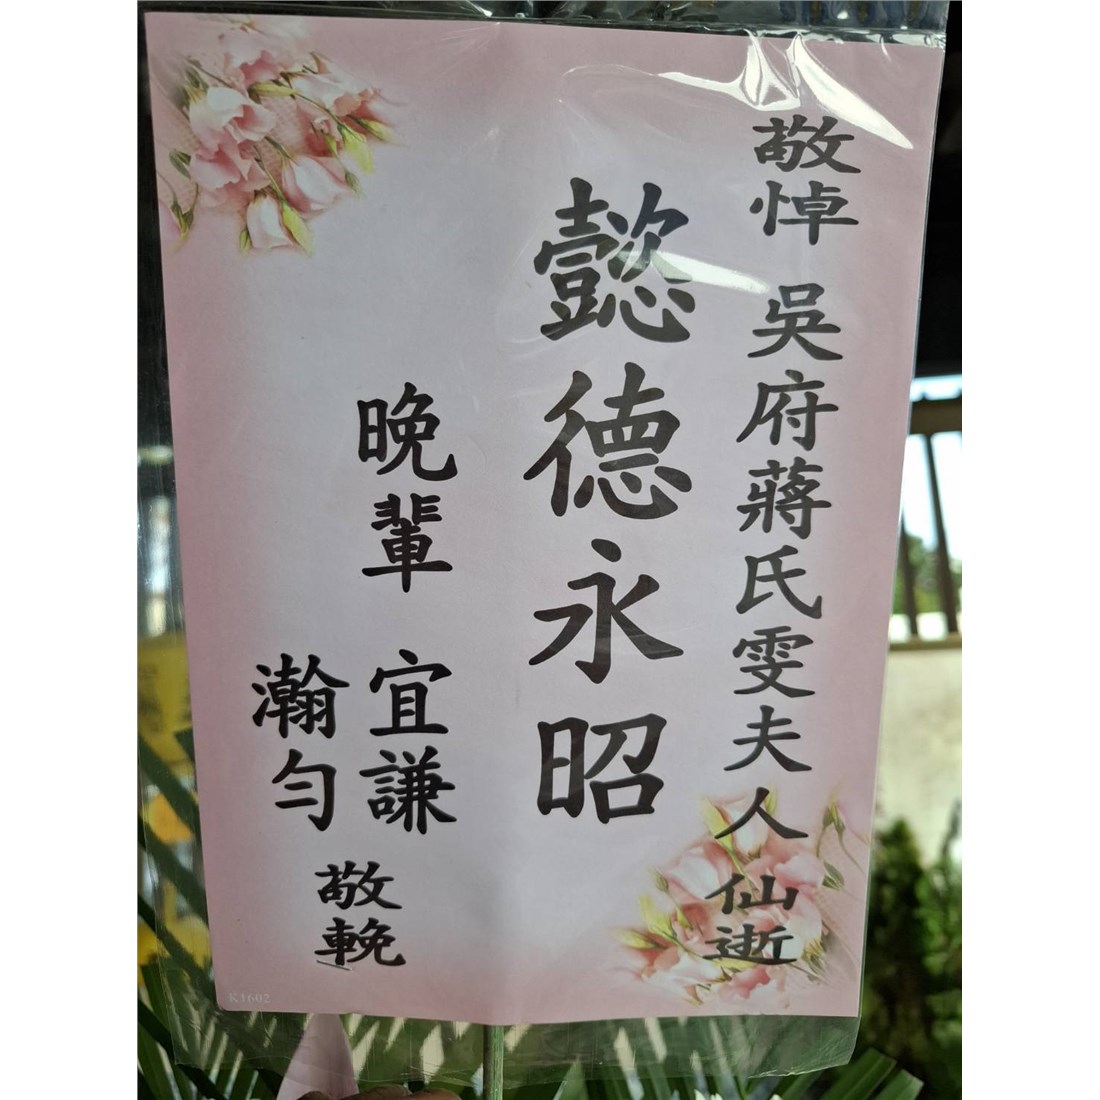 敬悼 吳府蔣氏雯夫人 仙逝
懿德永昭
晚輩 宜謙
瀚勻
敬輓
K1602